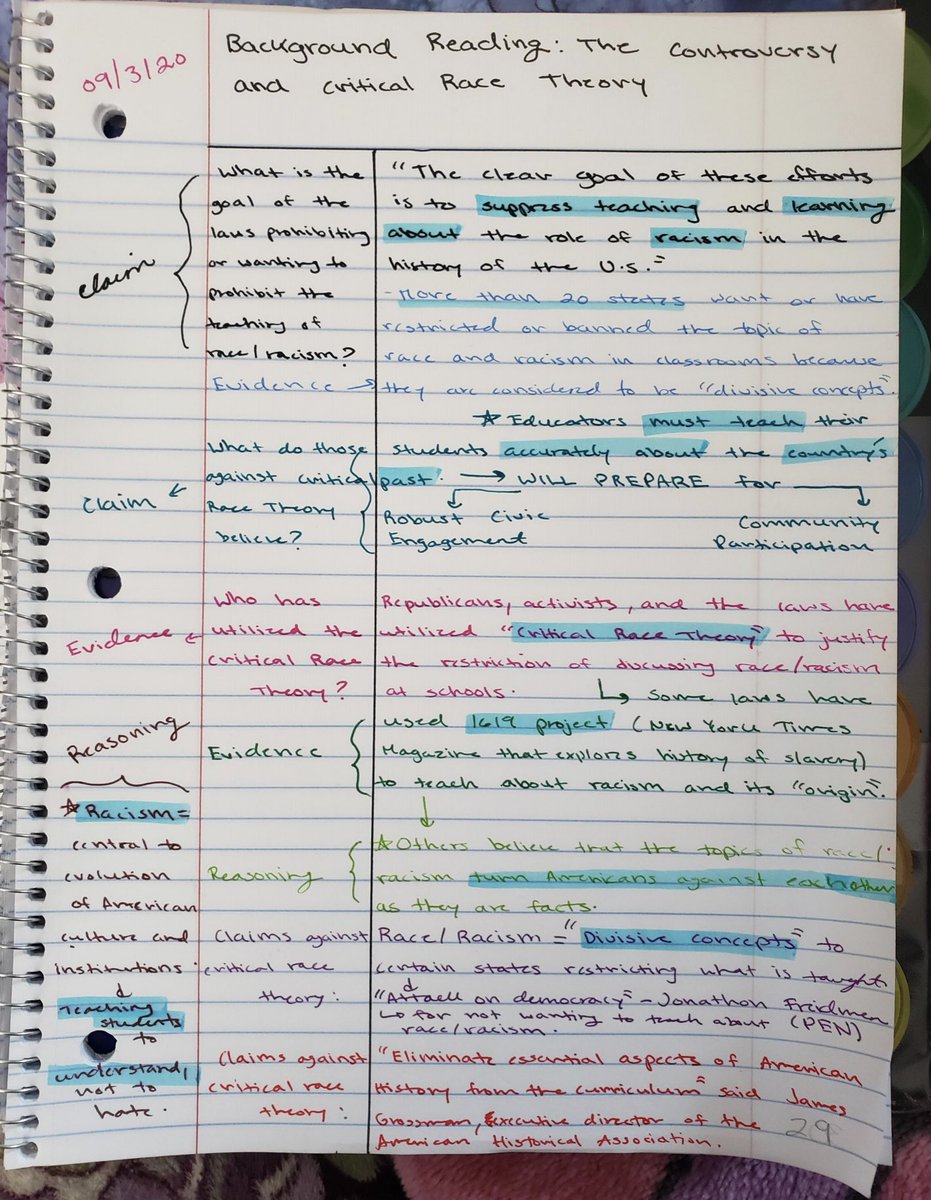 09/3/20
Background Reading: The controversy
and critical Race Theory
claim
What is the
goal of the
laws prohibiting
or wanting to
prohibit the
teaching of
race/racism?
"The clear goal of these efforts
is to suppress teaching and learning
about the role of racism in the
history of the U.S."
- More than 20 states want or have
restricted or banned the topic of
race and racism in classrooms because
Evidence → they are considered to be "divisive concepts".
claim ←
What do those
against critical
Race Theory
believe?
☆ Educators must teach their
students accurately about the country's
past. → WILL PREPARE for
Robust Civic
Engagement
Community
Participation
Evidence ←
Who has
utilized the
critical Race
Theory?
Republicans, activists, and the laws have
utilized "Critical Race Theory" to justify
the restriction of discussing race/racism
at schools. ↳ some laws have
Evidence
used 1619 project (New York Times
Magazine that explores history of slavery)
to teach about racism and its "origin".
Reasoning
☆ Others believe that the topics of race/
racism turn Americans against each other
as they are facts.
Reasoning
☆ Racism =
central to
evolution
of American
culture and
institutions.
↓
Teaching
students
to
understand,
not to
hate.
Claims against
critical race
theory:
Race/Racism = "Divisive concepts" to
certain states restricting what is taught
"Attack on democracy" - Jonathon Freidman
↳ for not wanting to teach about (PEN)
race/racism.
Claims against
critical race
theory:
"Eliminate essential aspects of American
History from the curriculum" said James
Grossman, Executive director of the
American Historical Association.
29